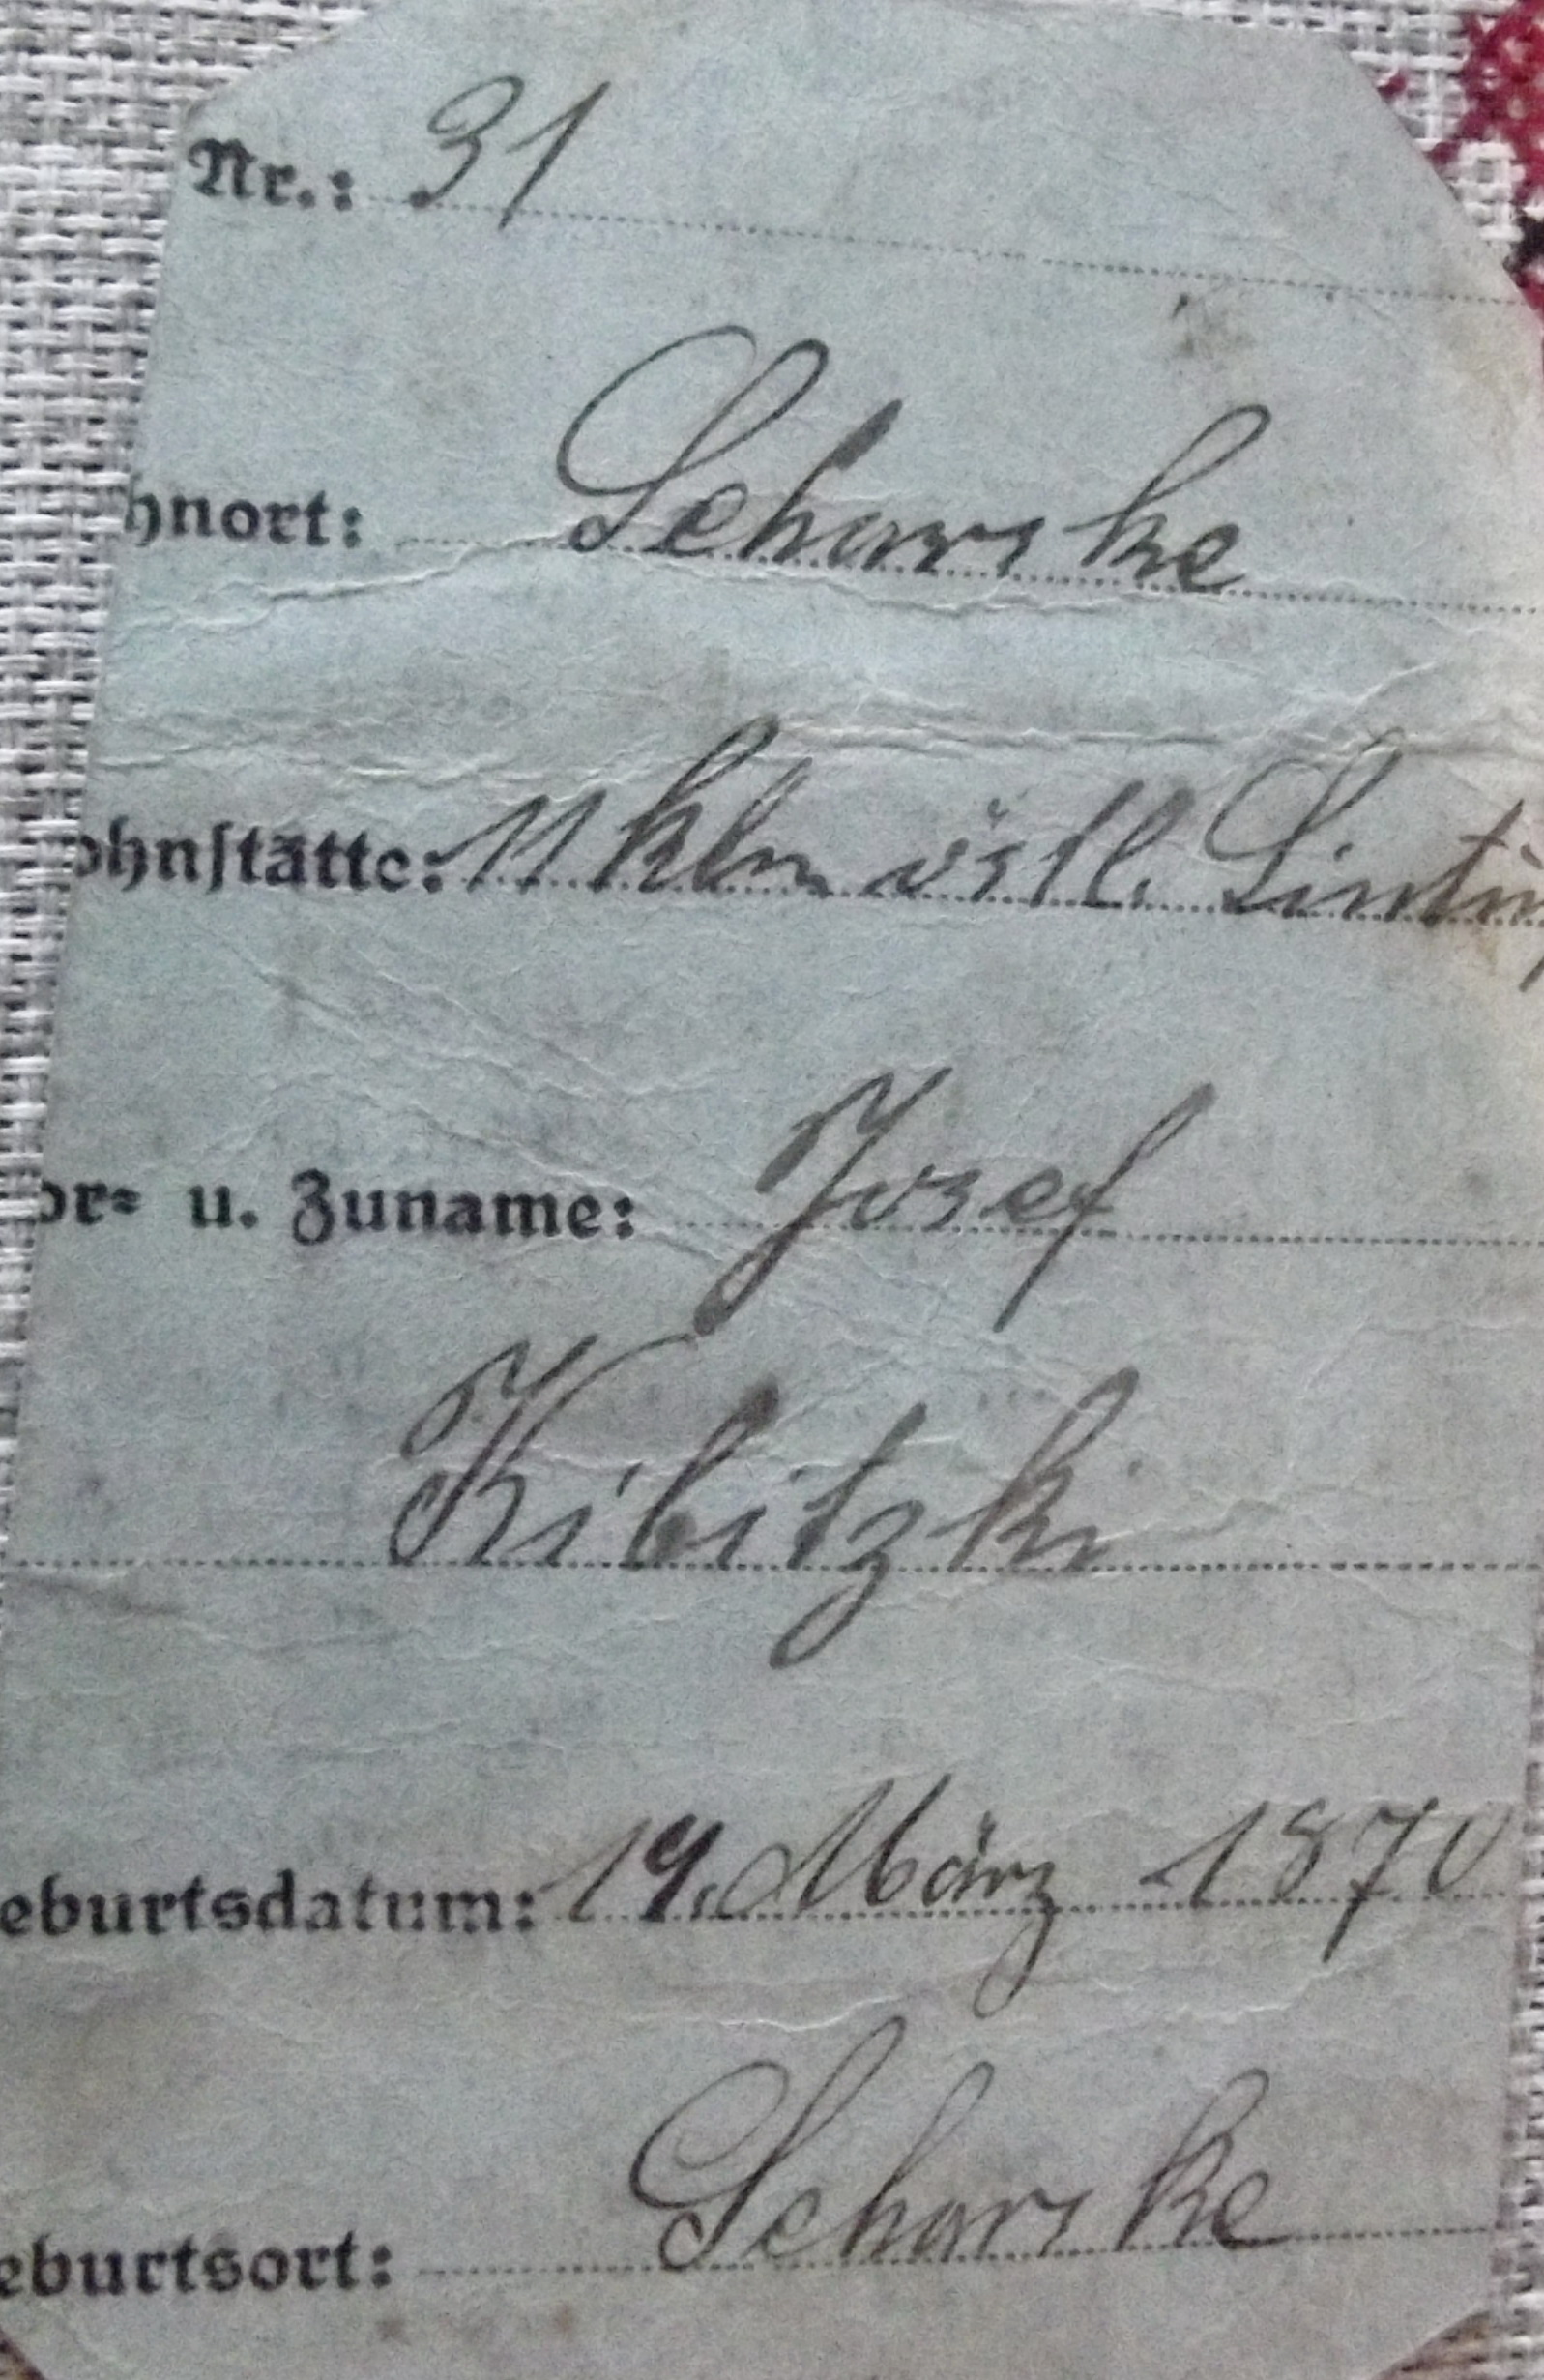 Nr.: 31
hnort: Scharske
ohnstätte: 11 klm östl. Lintup
or- u. Zuname: Josef
Kibitzki
eburtsdatum: 19. März 1870
eburtsort: Scharske